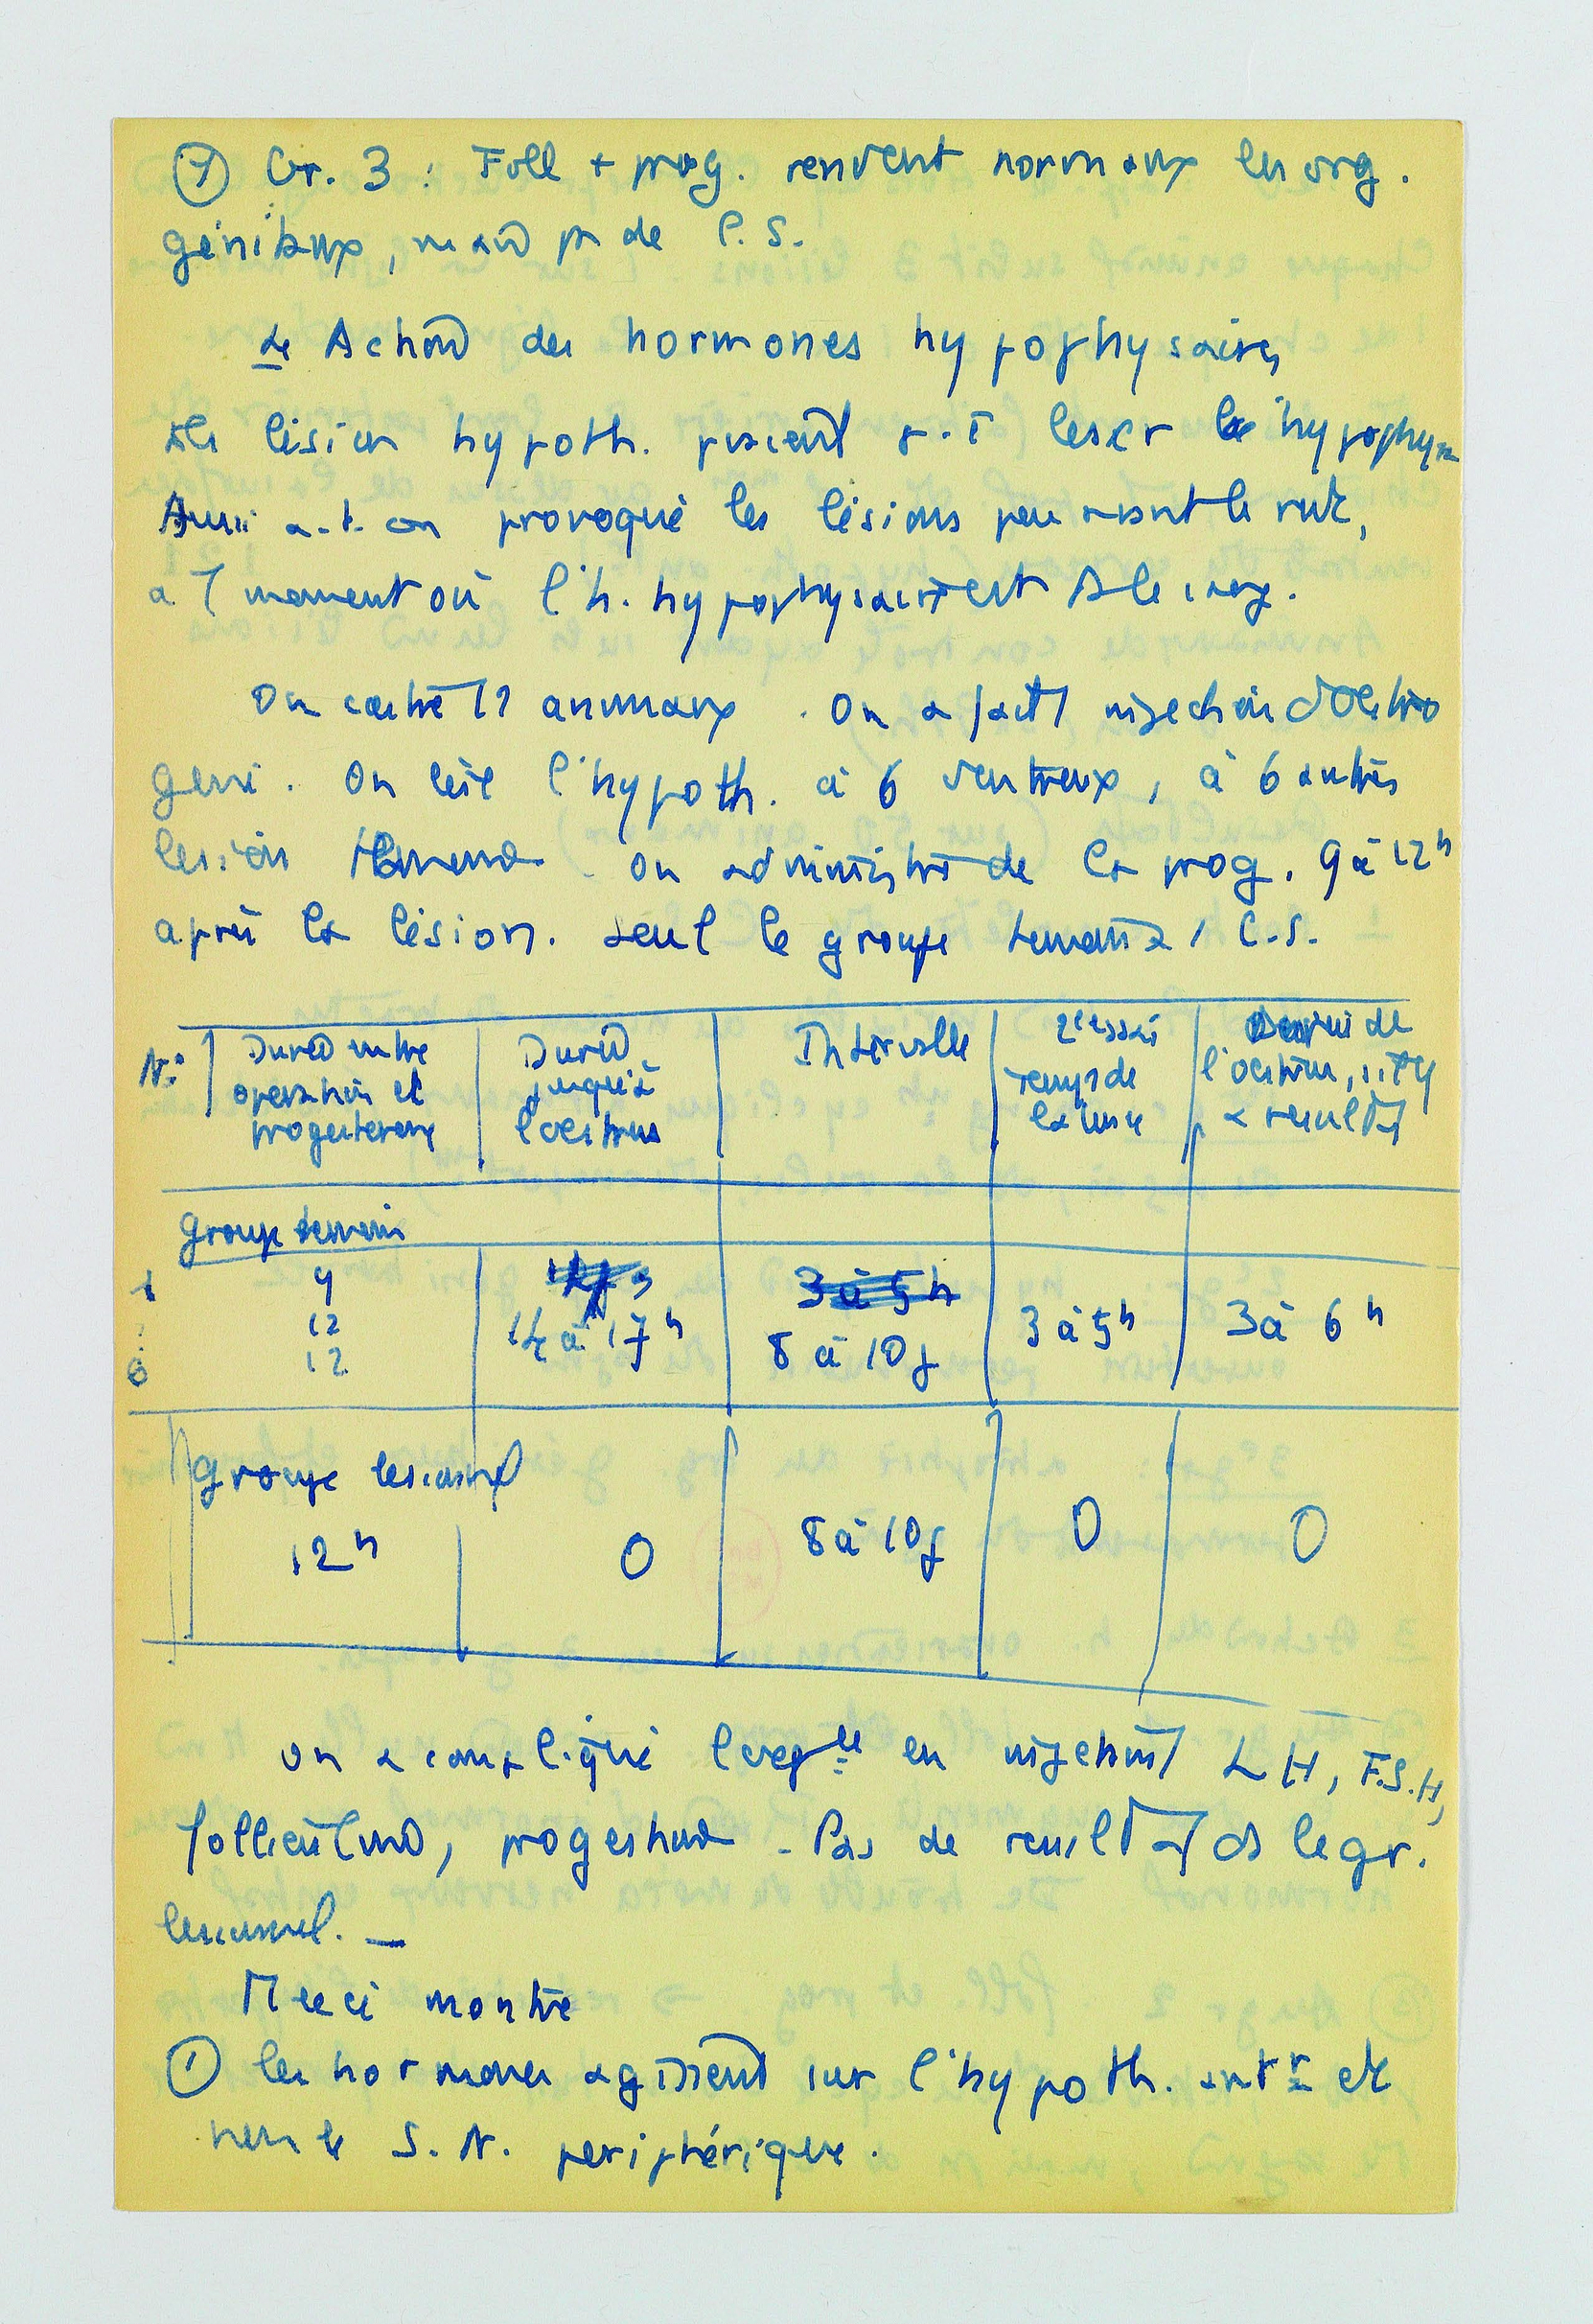 Gr. 3 : Foll + prog. rendent normaux les org.
génitaux, mais pas de C.S.
Action des hormones hypophysaires
lésion hypoth. peuvent léser l'hypophyse
Aussi a-t-on provoqué les lésions peu avant le rut,
à moment où l'h. hypophysaire est ds le sang.
On castre 12 animaux. On a fait injection d'Oestro
gène. On lèse l'hypoth. à 6 d'entre eux, à 6 autres
lésion témoin. On administre de la prog. 9 à 12h
après la lésion. Seul le groupe témoin a C.S.
N°
Durée entre
opération et
progesterone
Durée
jusqu'à
l'oestrus
Intervalle
2e essai
temps de
Durée de
l'oestrus
Groupe témoin
1
6
9
12
12
14 à 17h
3 à 5h
8 à 10j
3 à 5h
3 à 6h
Groupe lésionnel
12h
0
8 à 10j
0
0
On a compliqué l'exp ce en injectant LH, F.S.H,
folliculine, progestine. Pas de résultat ds le gr.
lésionnel. —
Ceci montre
① les hormones agissent sur l'hypoth. antr et
non le S. N. périphérique.